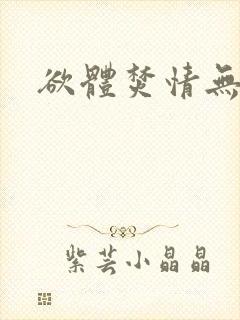 欲體焚情無
紫芸小晶晶